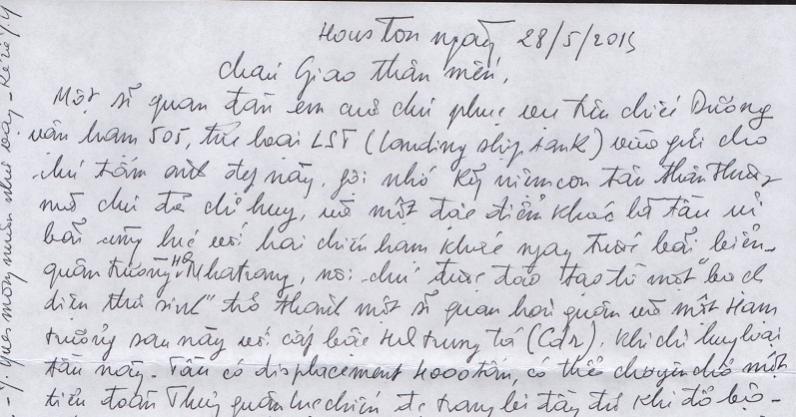 Houston ngày 28/5/2015
cháu Giao thân mến,
Một sĩ quan đàn em cũ chú phục vụ trên chiếc Dương
vận hạm 505, thuộc loại LST (landing ship tank) vừa gửi cho
chú tấm ảnh đẹp này, gợi nhớ kỷ niệm con tàu thân thương
mà chú đã chỉ huy, và một đặc điểm khác là tàu ủi
bãi cùng lúc với hai chiến hạm khác ngay trước bãi biển
quân trường HQ Nhatrang, nơi chú được đào tạo từ một "bạch
diện thư sinh" trở thành một sĩ quan hải quân và một Hạm
trưởng sau này với cấp bậc HQ trung tá (Cdr), khi chỉ huy loại
tàu này. Tàu có displacement 4000 tấn, có thể chuyên chở một
tiểu đoàn Thủy quân lục chiến được trang bị đầy đủ khi đổ bộ-
mong muốn như vậy -